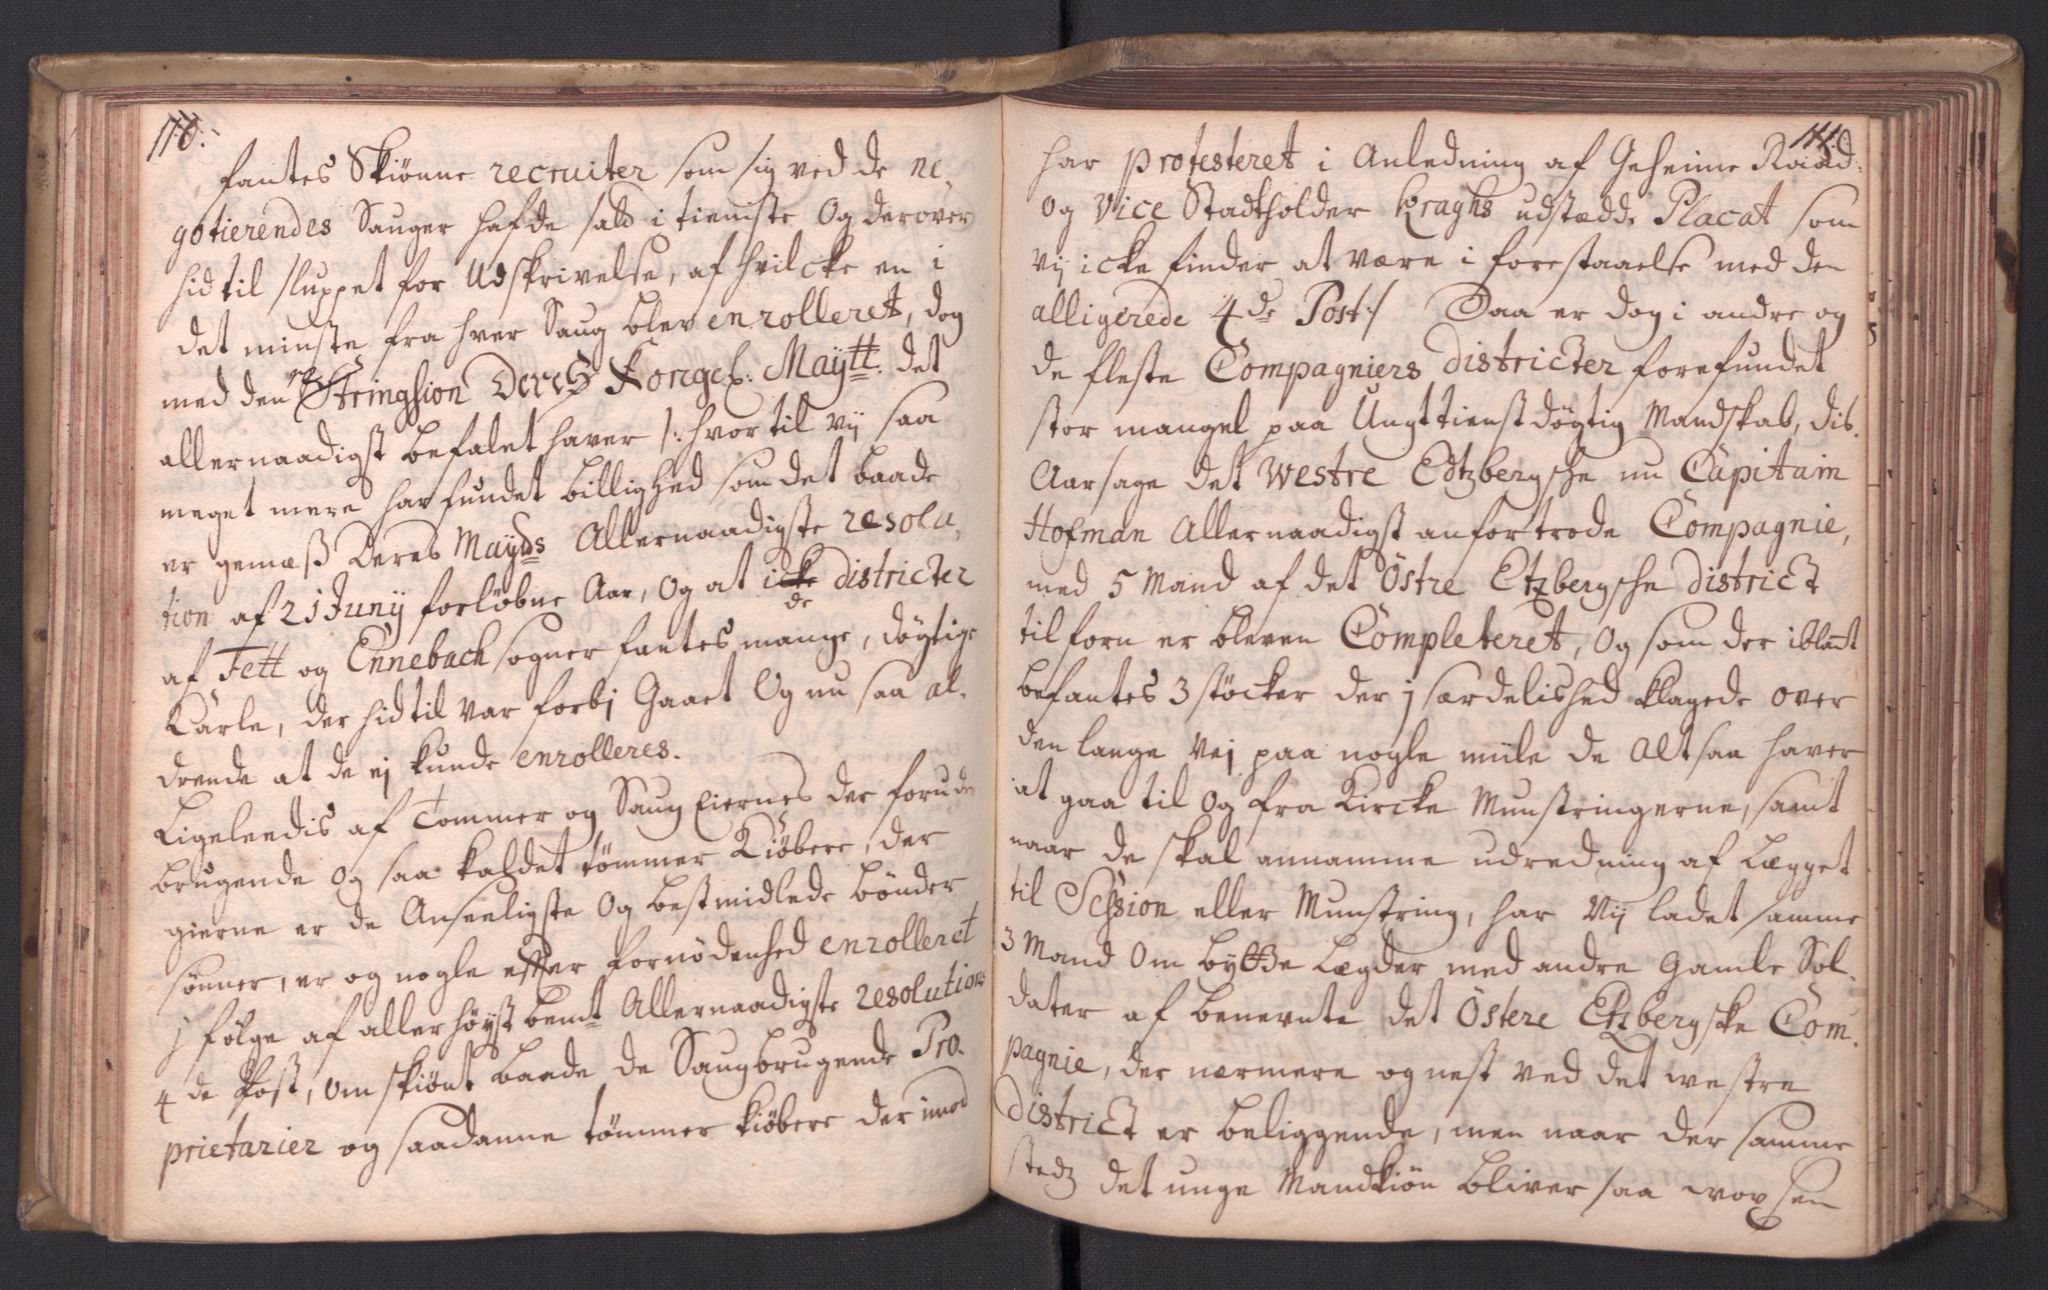 110.
fantes Skiönne recruiter som sig ved de ne,
gotierendes Sauger hafde sadt i tieniste Og derover
hid til sluppet for Udskrivelse, af hvilcke en i
det minste fra hver Saug blev enrolleret, dog
med den restringsion Deres Kongel: Maytt. det
allernaadigst befalet haver /: hvortil vij saa
meget mere har fundet billighed som det baade
er gemæß Deres Mayts Allernaadigste resolu,
tion af 21 Junij forløbne Aar, Og at icke de districter
af Fett og Ennebach sogner fantes mange, dögtige
Karle, der hid til var forbj Gaaet Og nu saa al,
drende at de ej kunde enrolleres.
Ligeleedis af Tommer og Saug Eiernes der forude
brugende Og saa kaldet tömmer Kiöbere, der
gierne er de Anseeligste Og best midlede bönder
sönner, er og nogle efter fornödenhed enrolleret
j fölge af allerhöyst bemt Allernaadigste resolutions
4 de Post, om skiönt baade de Saugbrugende Pro,
prietarier og saadanne tömmer kiöbere der imod
111.
har protesteret i Anledning af Geheime Raad
Og Vice Stadtholder Kraghs udstædde Placat som
vij icke finder at være i forestaaelse med den
alligerede 4 de Post:/ Saa er dog i andre og
de fleste Compagniers districter forefundet
stor mangel paa Ungt tienstdögtig Mandskab, dis,
Aarsage det Westre Edtzbergsche nu Capitain
Hofman Allernaadigst anfortrode Compagnie,
med 5 Mand af det Östre Etzbergsche district
tilforn er bleven Completeret, Og som der iblant
befantes 3 stöcker der j særdelished klagede over
den lange Vej paa nogle miile de Altsaa haver
at gaa til Og fra Kircke Munstringerne, samt
naar de skal annamme udredning af Lægget
til Session eller Munstring, har Vij ladet samme
3 Mand Om bytte Lægder med andre Gamle Sol,
dater af benevnte det Östere Etzbergske Com,
pagnie, der nærmere og nest ved det westre
district er beliggende, men naar der samme
stedz det unge Mandkiön bliver saa voxsen